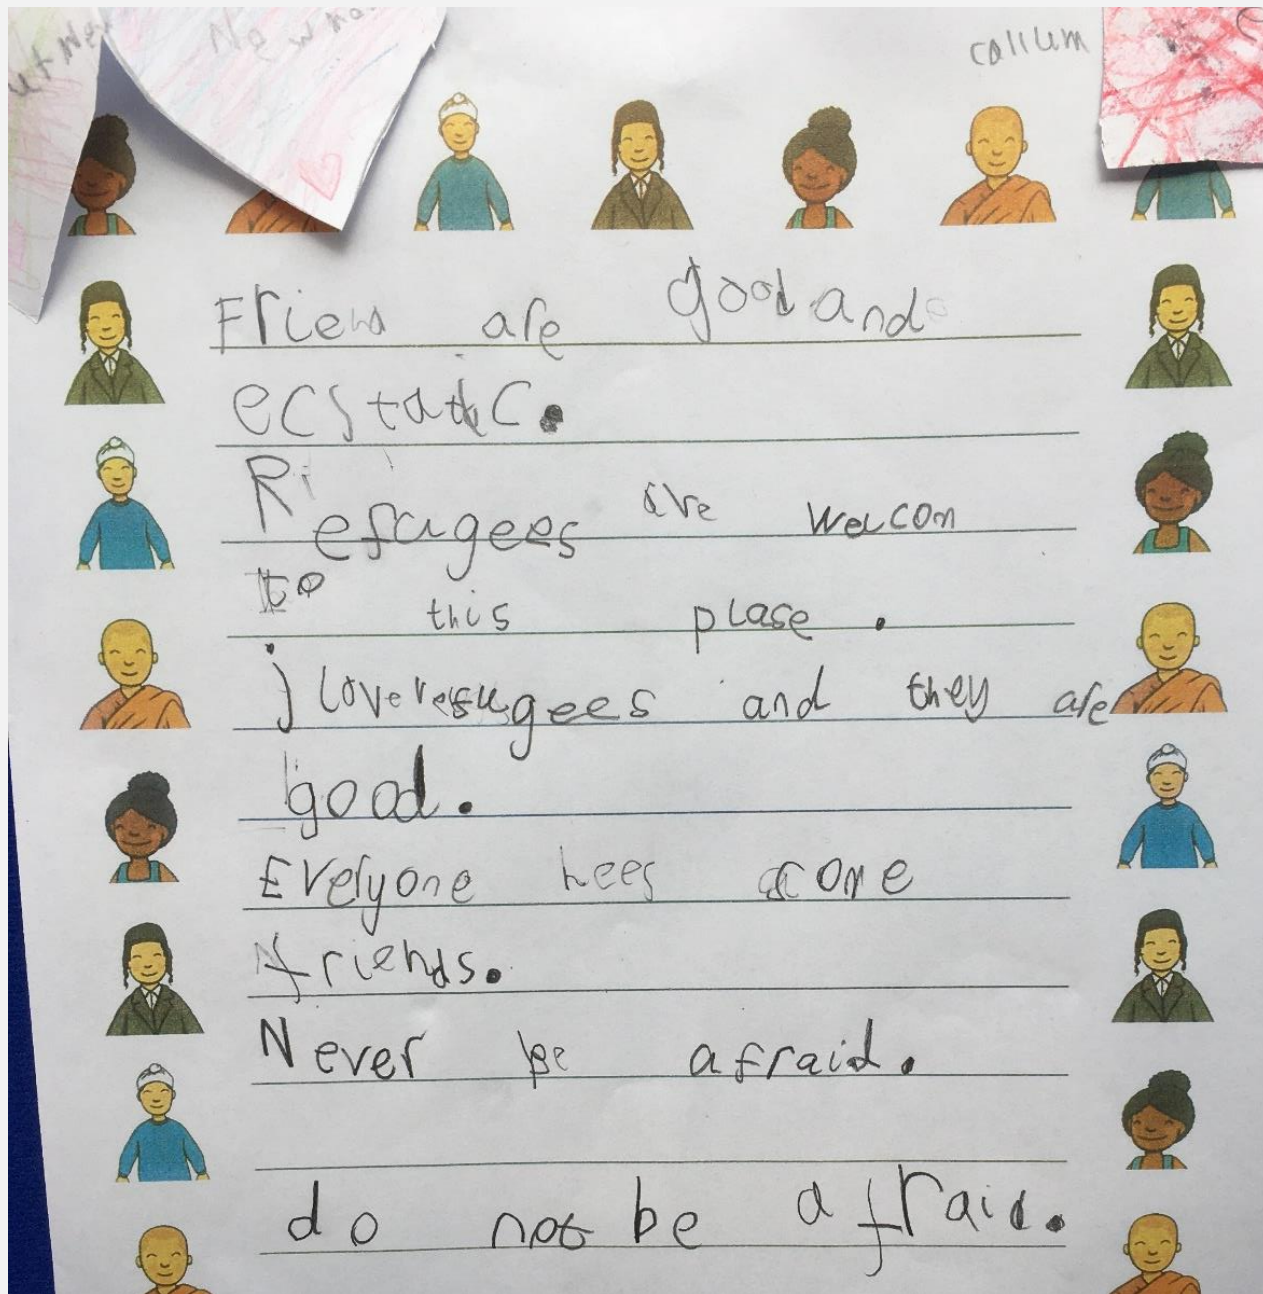 callum
Friend are good and
ecstatic.
Refugees are welcom
to this plase.
i love refugees and they are
good.
Everyone nees some
friends.
Never be afraid.
do not be afraid.